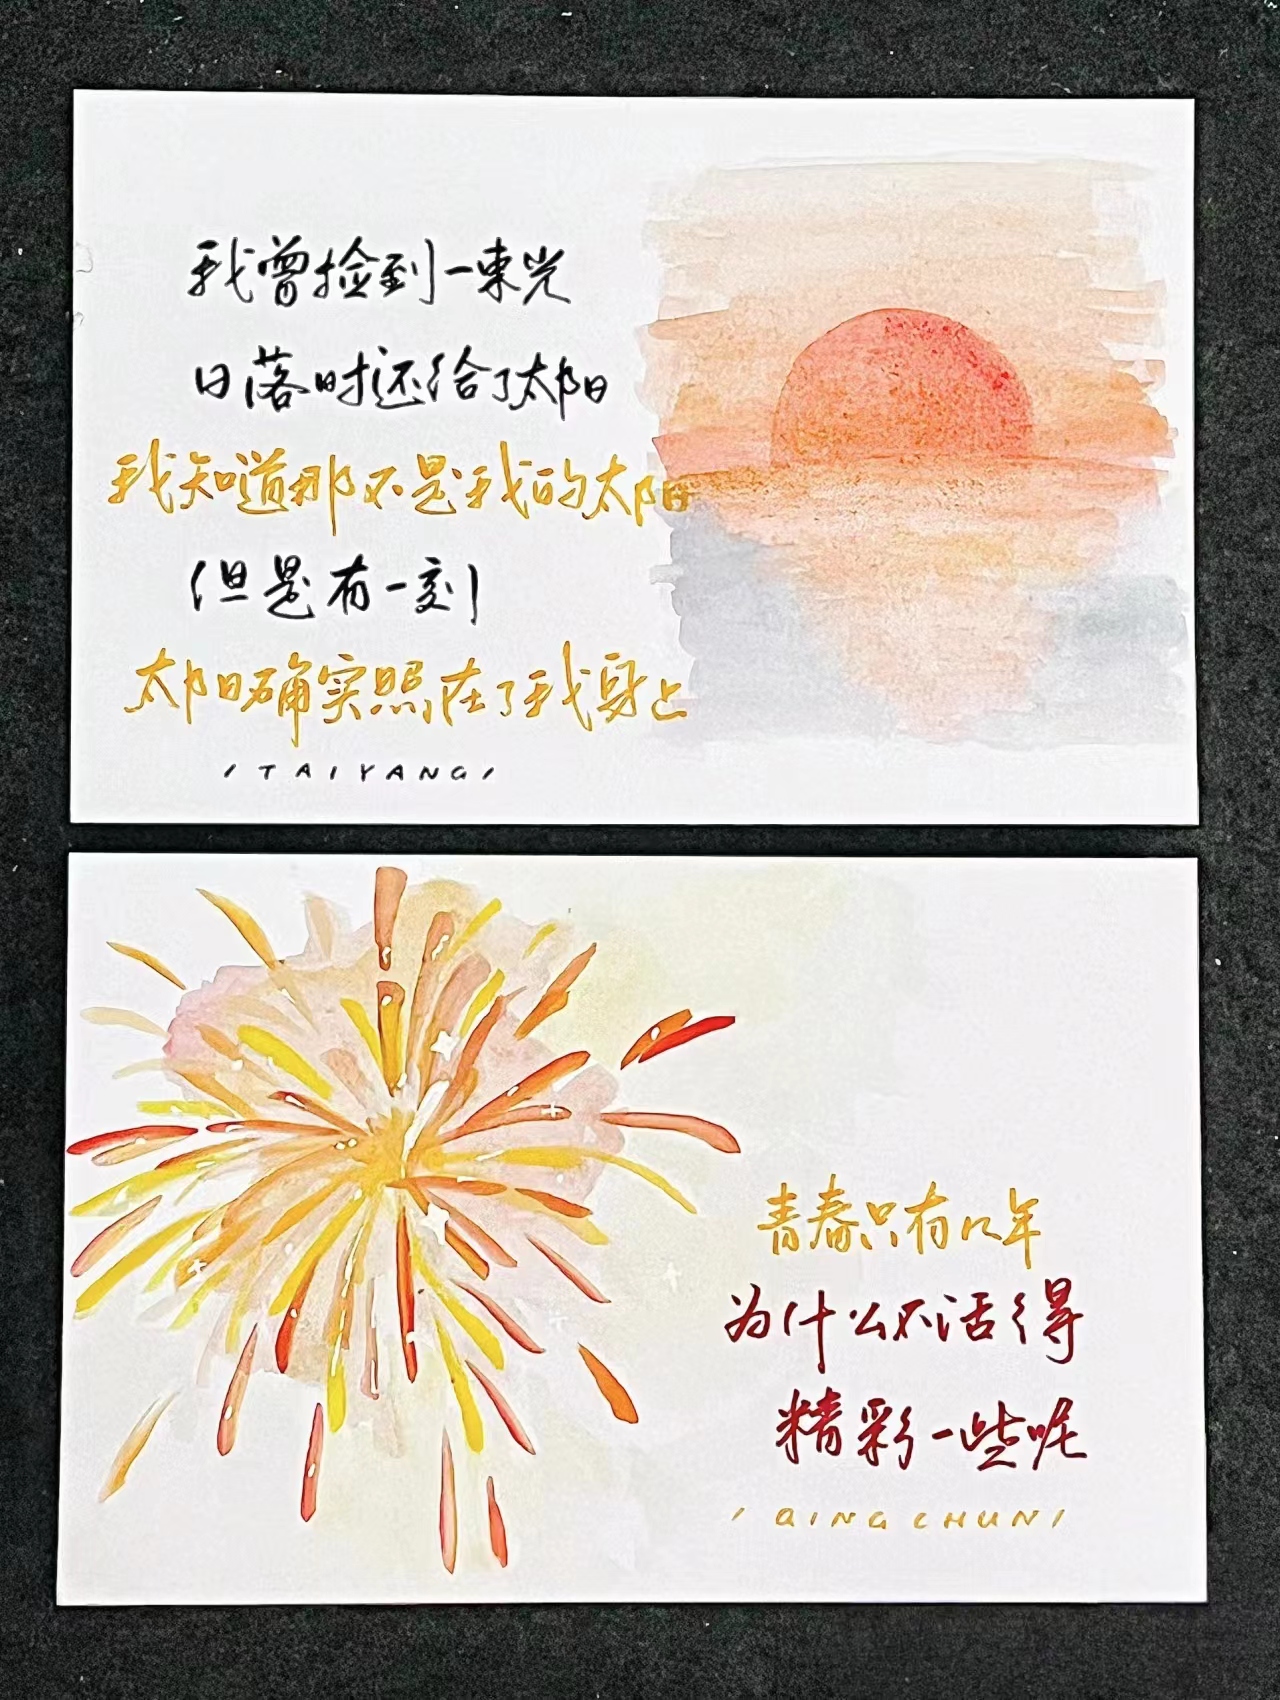 我曾捡到一束光
日落时还给了太阳
我知道那不是我的太阳
但是有一刻
太阳确实照在了我身上
/ TAIYANG /
青春只有几年
为什么不活得
精彩一些呢
/ QINGCHUN /